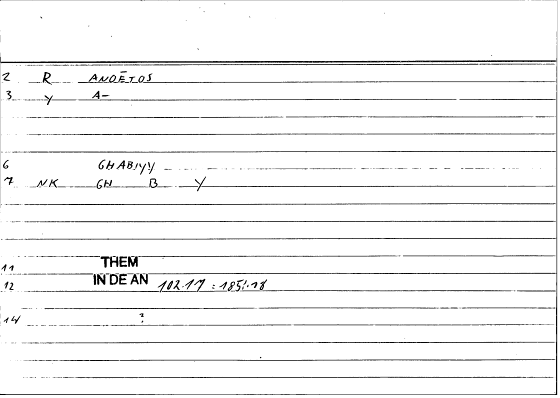 2 R ANOĒTOS
3 Y A-
6 GHABIYY
7 NK GH B Y
11 THEM
12 IN DE AN 102.17 : 185.18
14 ?